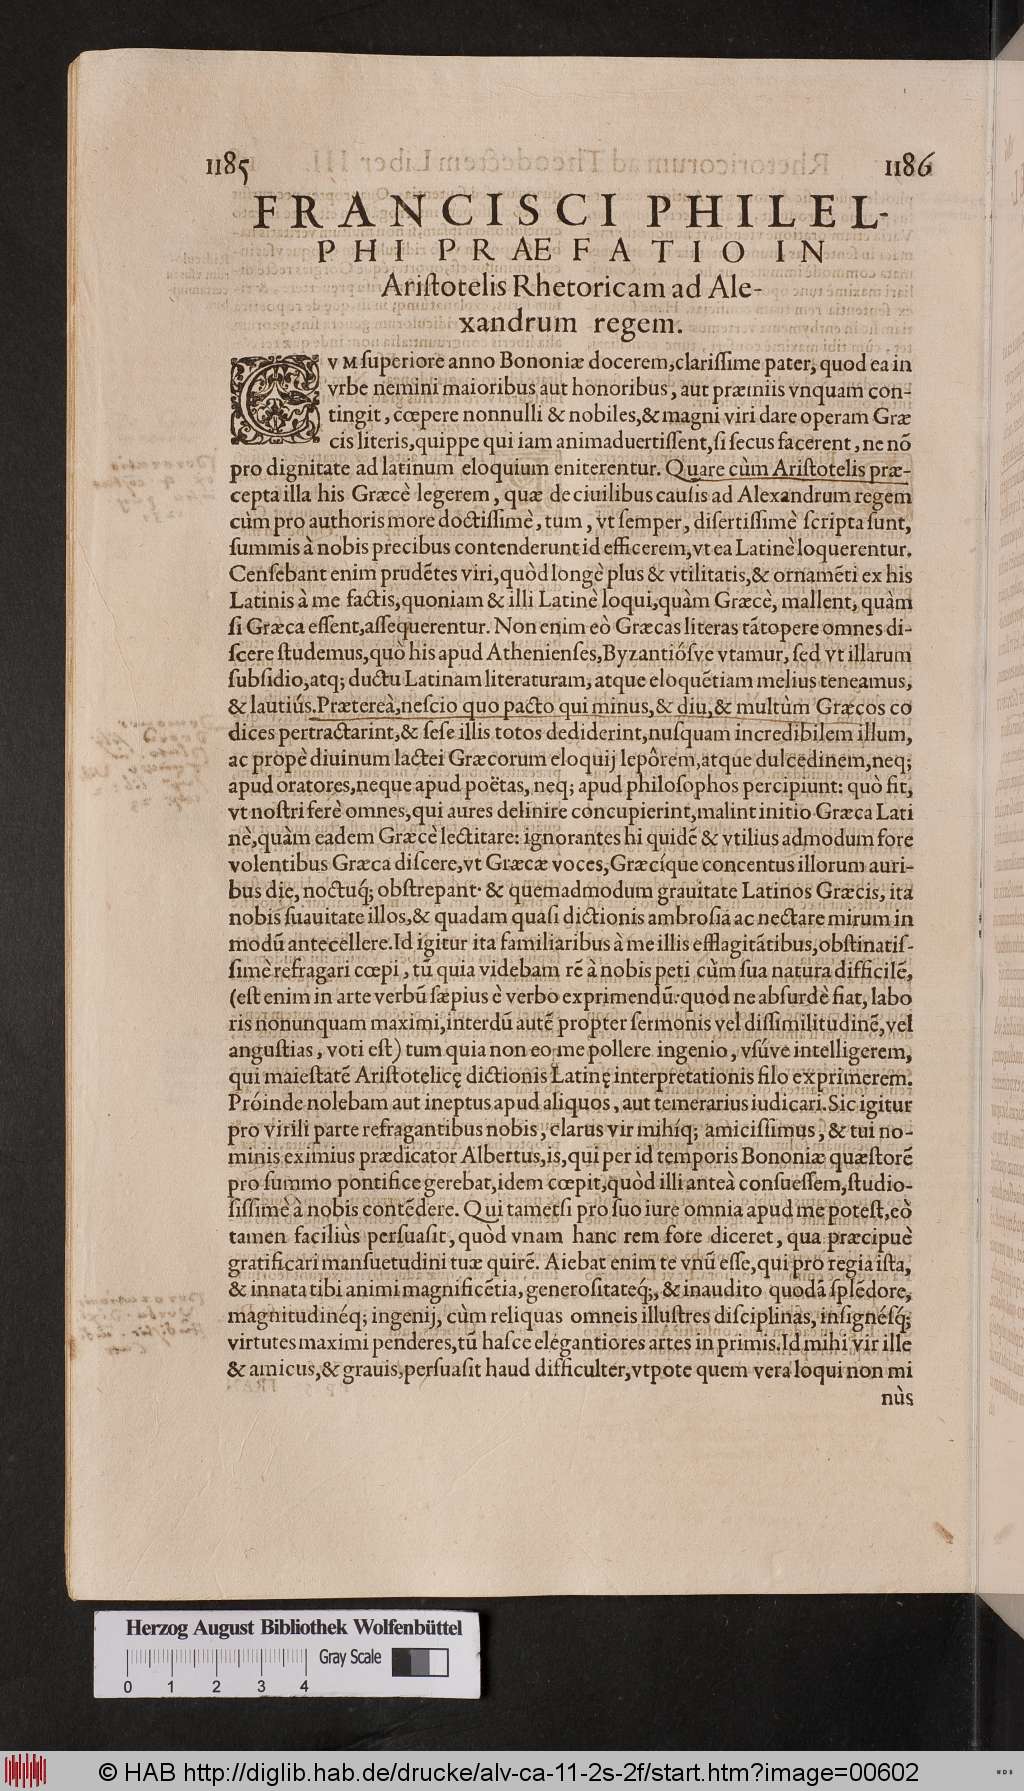 1185 1186
FRANCISCI PHILEL-
PHI PRÆFATIO IN
Ariſtotelis Rhetoricam ad Ale-
xandrum regem.
CVM ſuperiore anno Bononiæ docerem,clariſſime pater, quod ea in
vrbe nemini maioribus aut honoribus, aut præmiis vnquam con-
tingit, cœpere nonnulli & nobiles,& magni viri dare operam Græ
cis literis,quippe qui iam animaduertiſſent,ſi ſecus facerent, ne nō
pro dignitate ad latinum eloquium eniterentur. Quare cùm Ariſtotelis præ-
cepta illa his Græcè legerem, quæ de ciuilibus cauſis ad Alexandrum regem
cùm pro authoris more doctiſſimè, tum, vt ſemper, diſertiſſimè ſcripta ſunt,
ſummis à nobis precibus contenderunt id efficerem,vt ea Latinè loquerentur.
Cenſebant enim prudētes viri,quòd longè plus & vtilitatis,& ornamēti ex his
Latinis à me factis,quoniam & illi Latinè loqui,quàm Græcè, mallent, quàm
ſi Græca eſſent,aſſequerentur. Non enim eò Græcas literas tātopere omnes di-
ſcere ſtudemus,quò his apud Athenienſes,Byzantióſve vtamur, ſed vt illarum
ſubſidio,atq; ductu Latinam literaturam, atque eloquētiam melius teneamus,
& lautiús.Prætereà,neſcio quo pacto qui minus,& diu,& multùm Græcos co
dices pertractarint,& ſeſe illis totos dediderint,nuſquam incredibilem illum,
ac propè diuinum lactei Græcorum eloquij lepôrem,atque dulcedinem,neq;
apud oratores,neque apud poëtas, neq; apud philoſophos percipiunt: quò fit,
vt noſtri ferè omnes,qui aures delinire concupierint,malint initio Græca Lati
nè,quàm eadem Græcè lectitare: ignorantes hi quidē & vtilius admodum fore
volentibus Græca diſcere,vt Græcæ voces,Græcíque concentus illorum auri-
bus die, noctuq́; obſtrepant· & quemadmodum grauitate Latinos Græcis, ita
nobis ſuauitate illos,& quadam quaſi dictionis ambroſia ac nectare mirum in
modū antecellere.Id igitur ita familiaribus à me illis efflagitātibus,obſtinatiſ-
ſimè refragari cœpi, tū quia videbam rē à nobis peti cùm ſua natura difficilē,
(eſt enim in arte verbū ſæpius è verbo exprimendū:quod ne abſurdè fiat, labo
ris nonunquam maximi,interdū autē propter ſermonis vel diſſimilitudinē,vel
anguſtias, voti eſt) tum quia non eo me pollere ingenio, vſúve intelligerem,
qui maieſtatē Ariſtotelicę dictionis Latinę interpretationis filo exprimerem.
Próinde nolebam aut ineptus apud aliquos, aut temerarius iudicari.Sic igitur
pro virili parte refragantibus nobis, clarus vir mihíq; amiciſſimus, & tui no-
minis eximius prædicator Albertus,is,qui per id temporis Bononiæ quæſtorē
pro ſummo pontifice gerebat,idem cœpit,quòd illi anteà conſueſſem,ſtudio-
ſiſſimè à nobis contēdere. Qui tametſi pro ſuo iure omnia apud me poteſt,eò
tamen faciliùs perſuaſit, quòd vnam hanc rem fore diceret, qua præcipuè
gratificari manſuetudini tuæ quirē. Aiebat enim te vnū eſſe,qui pro regia iſta,
& innata tibi animi magnificētia, generoſitateq́;, & inaudito quodā ſplēdore,
magnitudinéq; ingenij, cùm reliquas omneis illuſtres diſciplinas, inſignéſq́;
virtutes maximi penderes,tū haſce elegantiores artes in primis.Id mihi vir ille
& amicus,& grauis,perſuaſit haud difficulter,vtpote quem vera loqui non mi
nùs
Herzog August Bibliothek Wolfenbüttel
Gray Scale
0 1 2 3 4
© HAB http://diglib.hab.de/drucke/alv-ca-11-2s-2f/start.htm?image=00602